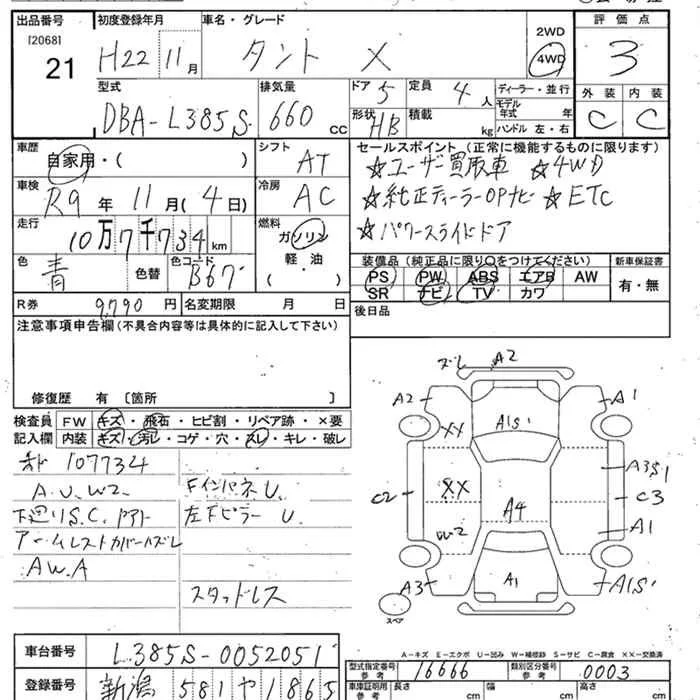 出品番号 初度登録年月 車名・グレード 2WD 評価点
[2068] 21 H22 11月 タント X 4WD 3
型式 排気量 ドア 定員 ディーラー・並行 外装 内装
DBA-L385S 660 CC 5 4人 モデル年式 年 C C
形状 HB 積載 kg ハンドル 左・右
車歴 シフト セールスポイント(正常に機能するものに限ります)
自家用・( ) AT ☆ユーザー買取車 ☆4WD
車検 冷房 ☆純正ディーラーOPナビ ☆ETC
R9年 11月(4日) AC ☆パワースライドドア
走行 燃料
10万7千734km ガソリン
色 色替 色コード 軽・油
青 B67 ( )
装備品(純正品に限り○をつけてください) 新車保証書
PS PW ABS エアB AW 有・無
SR ナビ TV カワ
R券 9,790円 名変期限 月 日 後日品
注意事項申告欄(不具合内容等は具体的に記入して下さい)
修復歴 有 〔箇所 〕
検査員 FW キズ・飛石・ヒビ割・リペア跡・×要
記入欄 内装 キズ・汚レ・コゲ・穴・スレ・キレ・破レ
107734
A.U.W2 FインパネU.
下廻りS.C. 左FピラーU
アームレストカバーハズレ
A.W.A
スタッドレス
ズレ A2
A2 A1
XX A1S
A3S1
XX C2 A4 C3
W2 A1
A3 A1 A1S
スペア
A-キズ E-エクボ U-凹み W-補修跡 S-サビ C-腐食 XX-交換済
車台番号 L385S-0052051
型式指定番号 参考 16666 類別区分番号 参考 0003
登録番号 新潟 581 や 1865
車庫証明用 参考 長さ cm 幅 cm 高さ cm